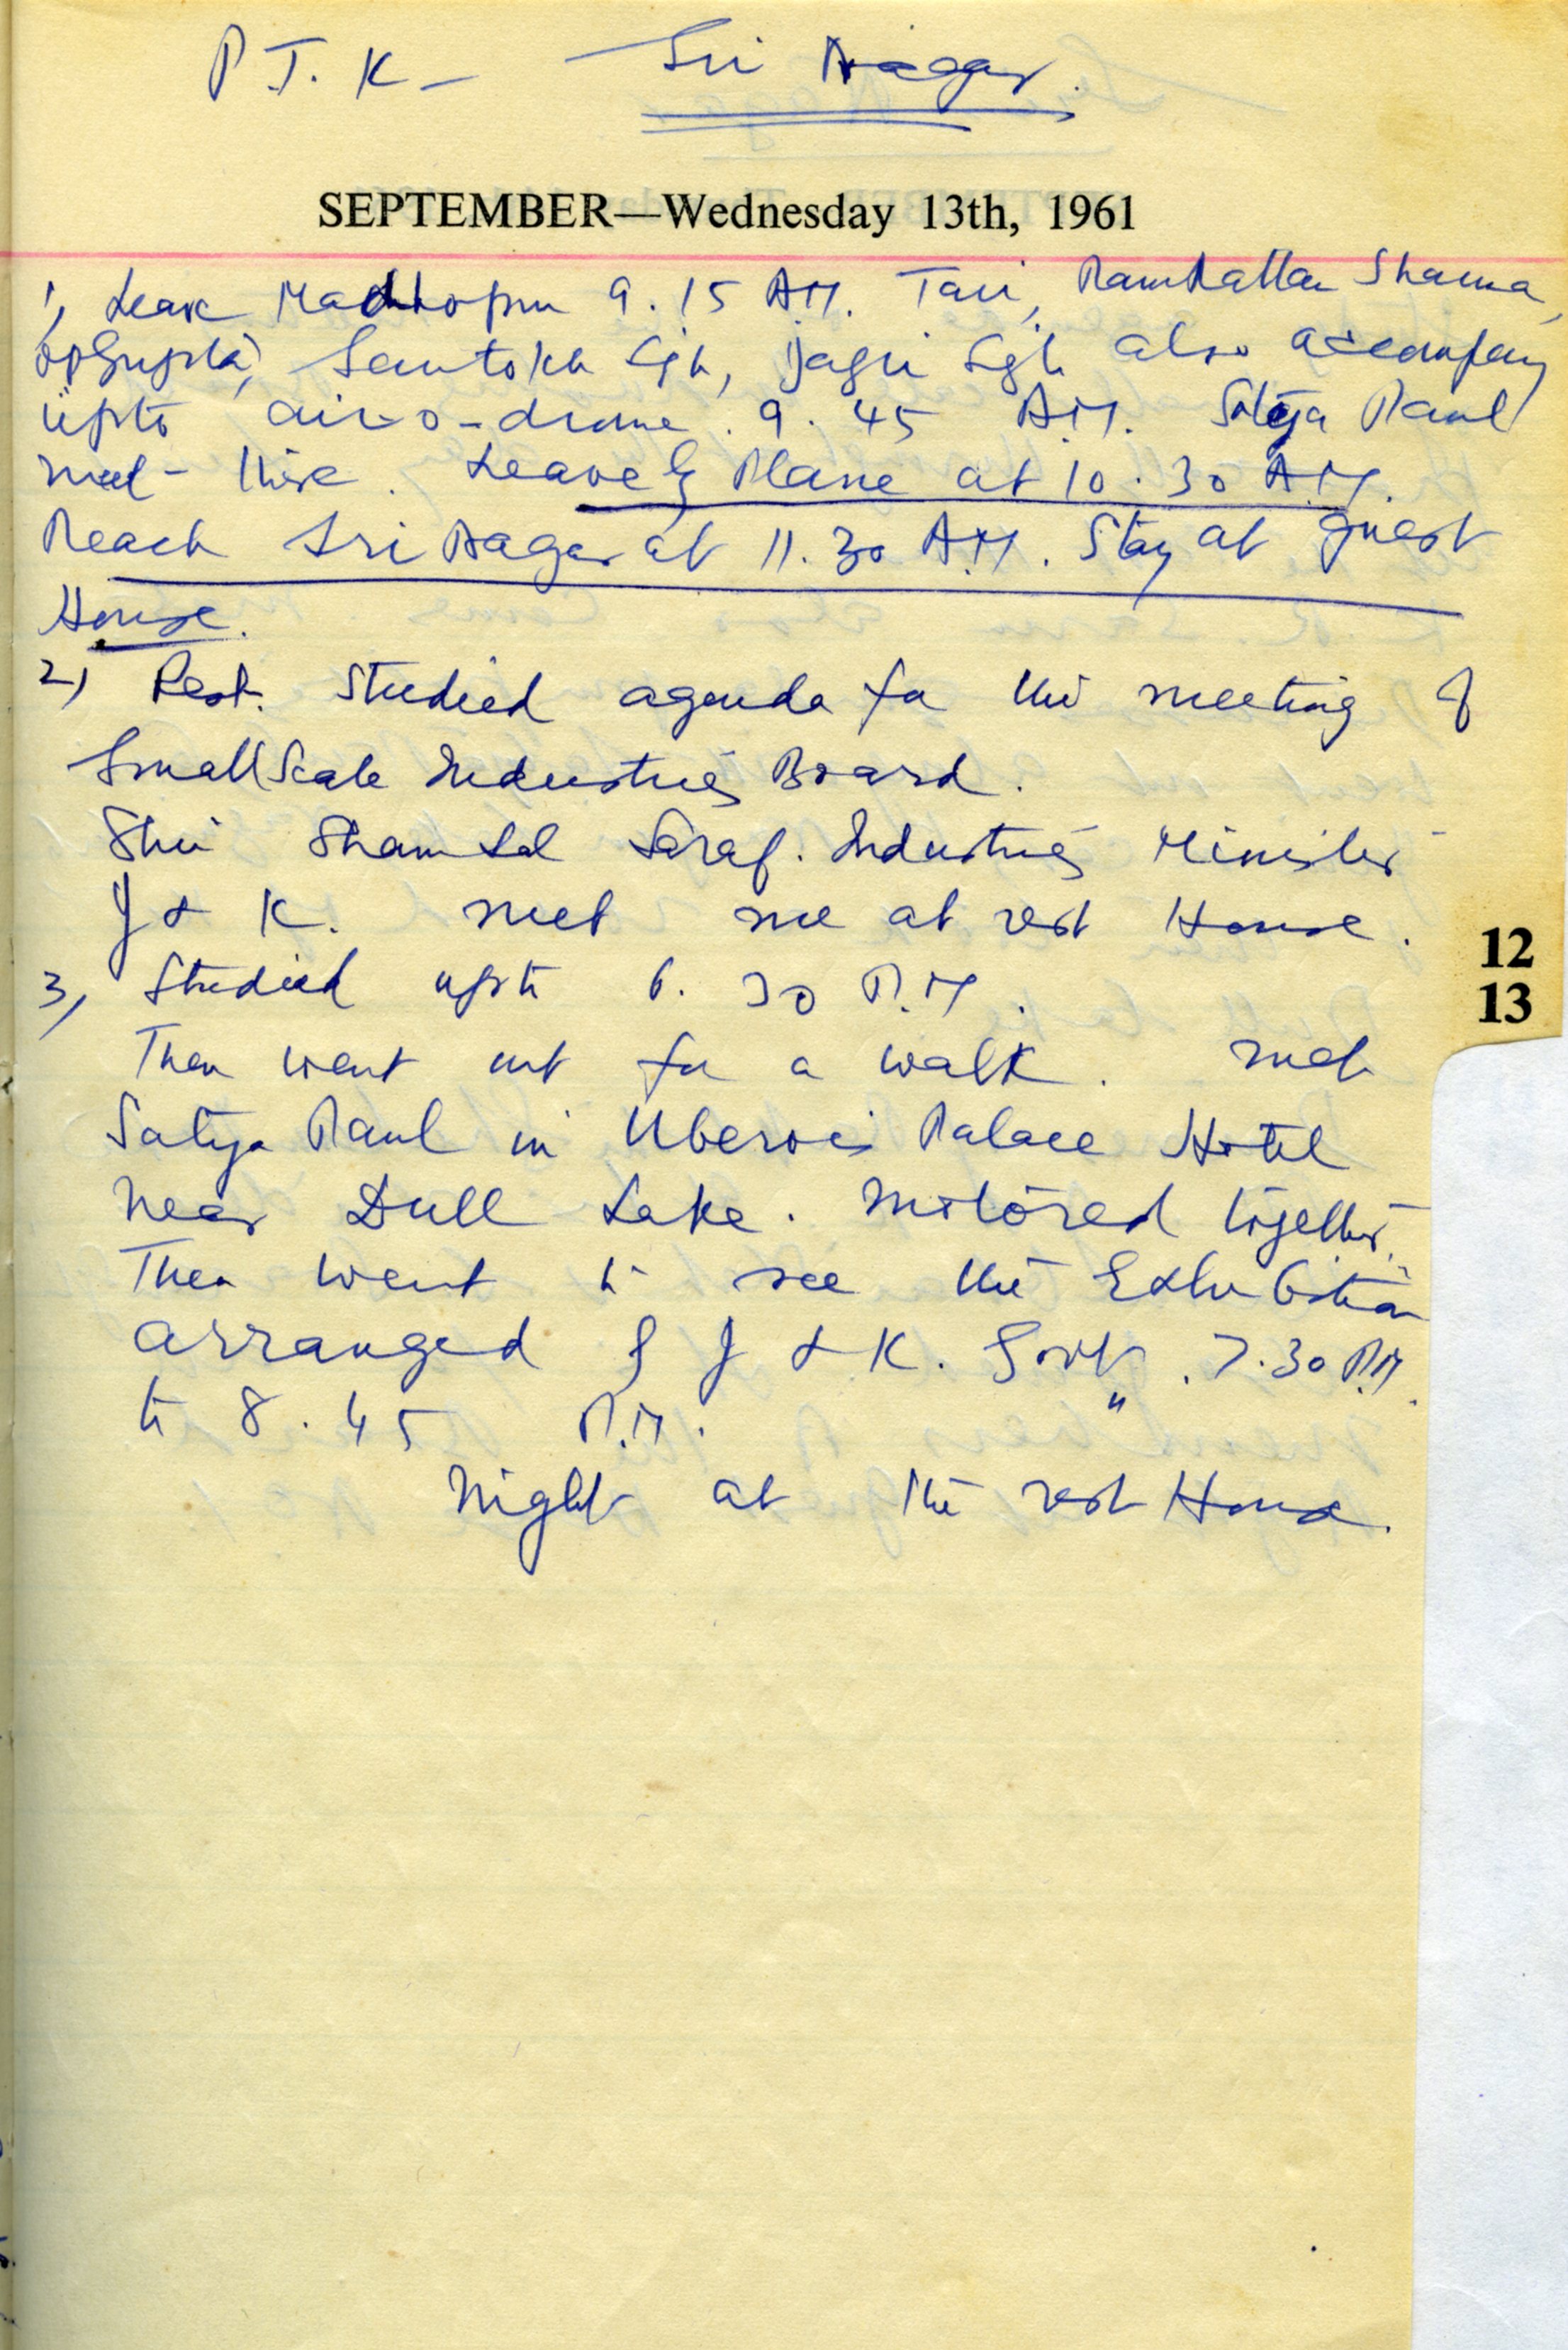 P T. K — Sri Nagar.
SEPTEMBER—Wednesday 13th, 1961
1, Leave Madhopur 9.15 A.M. Tari, Ramrattan Sharma,
OpGupta, Santokh Sgh, Jagir Sgh also accompany
upto air-o-drome. 9.45 A.M. Satya Paul
met there. Leave by Plane at 10.30 A.M.
Reach Sri Nagar at 11.30 A.M. Stay at guest
House.
2) Rest. Studied agenda for the meeting of
Small Scale Industries Board.
Shri Sham Lal Saraf. Industries Minister
J & K. met me at rest House.
3, Studied upto 6.30 P.M.
Then went out for a walk. met
Satya Paul in Uberois Palace Hotel
near Dull Lake. motored together.
Then went to see the Exhibition
arranged by J & K. Govt. 7.30 P.M.
to 8.45 P.M. "
Night at the rest House.
12
13